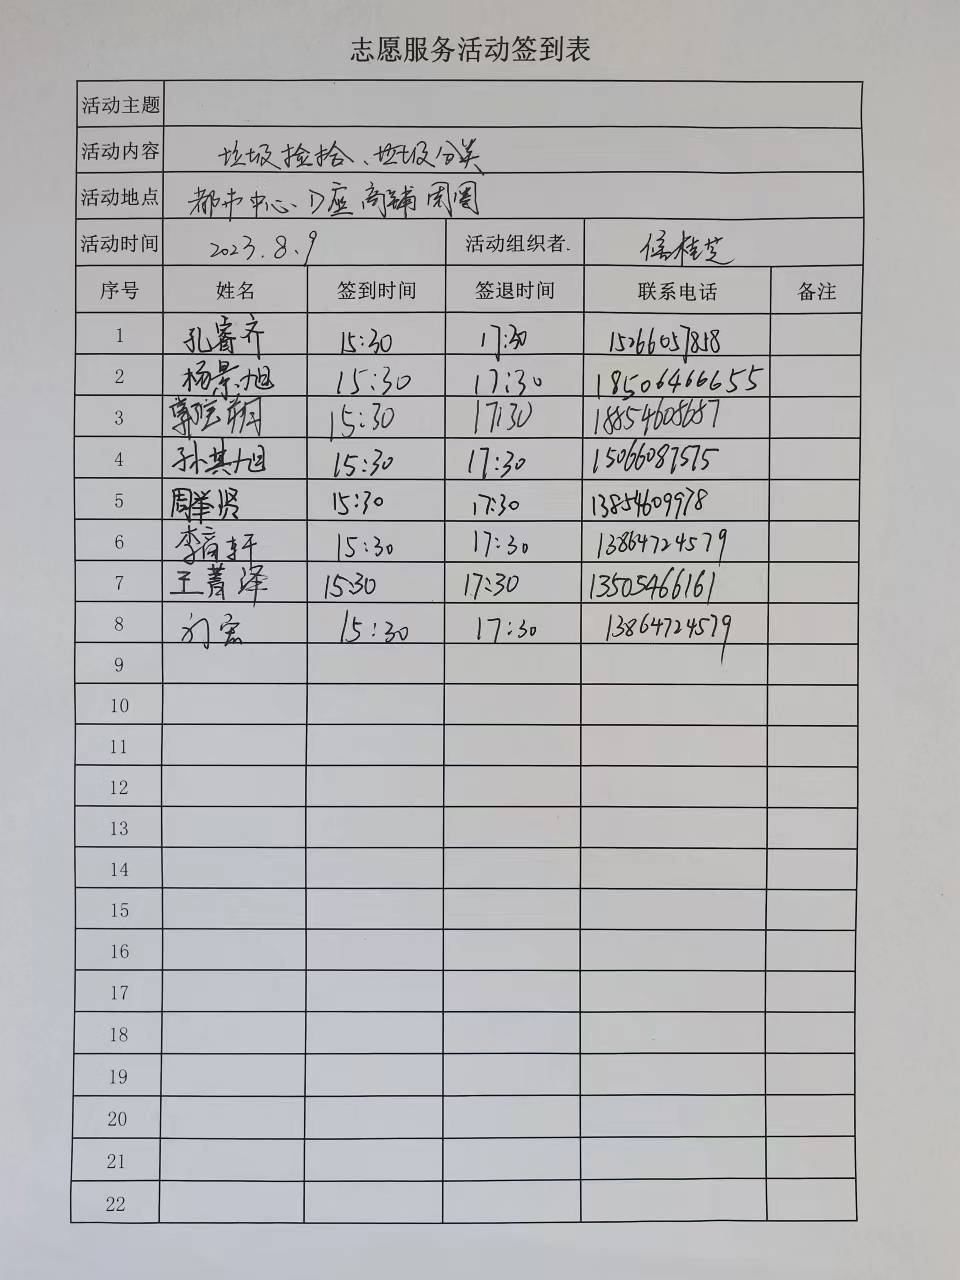 志愿服务活动签到表
活动主题
活动内容 垃圾捡拾、垃圾分类
活动地点 都市中心、D座商铺周围
活动时间 2023.8.9 活动组织者. 桂芝
序号 姓名 签到时间 签退时间 联系电话 备注
1 孔睿齐 15:30 17:30 15266057858
2 杨景旭 15:30 17:30 18506466655
3 15:30 17:30 18854608687
4 孙其旭 15:30 17:30 15066087575
5 周举贤 15:30 17:30 13854609978
6 李音轩 15:30 17:30 13864724579
7 王菁泽 15:30 17:30 13505466161
8 宏 15:30 17:30 13864724579
9
10
11
12
13
14
15
16
17
18
19
20
21
22